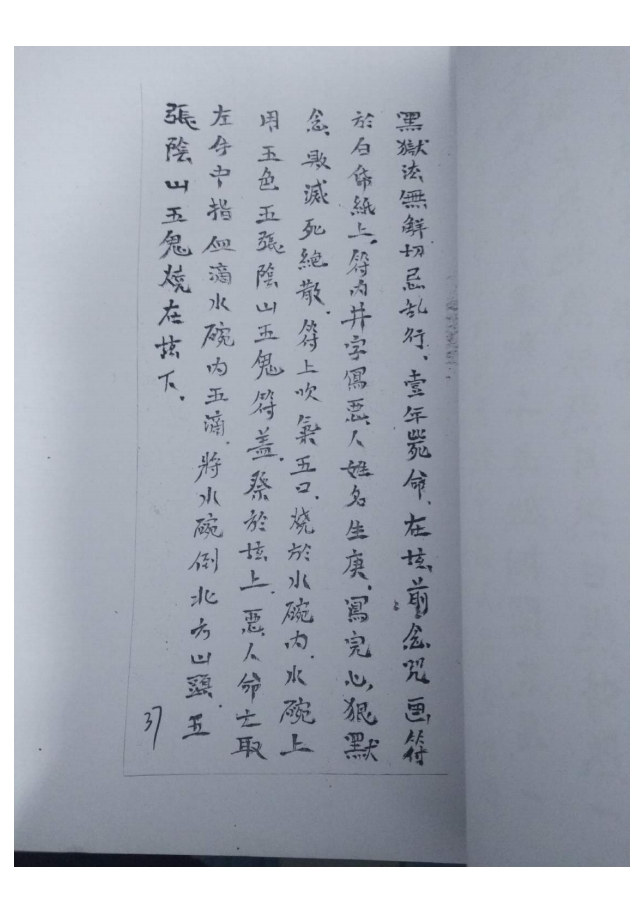 黑獄法無解切忌乱行、壹年斃命、在坛前念咒画符
於白佈紙上、符内井字寫惡人姓名生庚、寫完心狠默
念、敗滅死絕散、符上吹氣五口、燒於水碗内、水碗上
用五色五張陰山五鬼符蓋、祭於坛上、惡人命亡取
左手中指血滴水碗内五滴、將水碗倒北方山頭、五
張陰山五鬼燒在坛下、
37